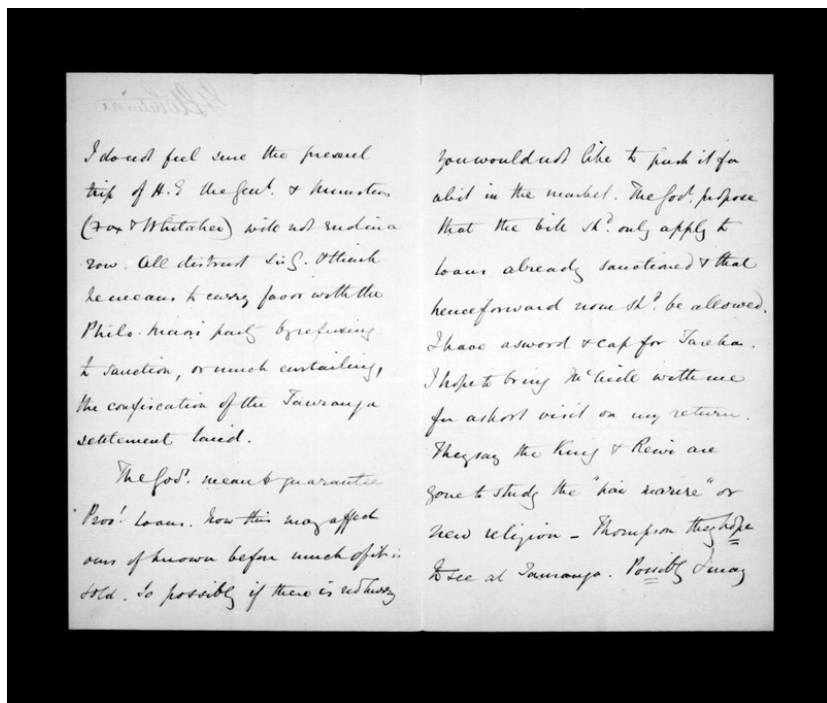 I do not feel sure the present
trip of H.E the Genl. & Ministers
(Fox & Whitaker) will not end in a
row. All distrust Sir G. & think
he means to carry favor with the
Philo-maori party by refusing
to sanction, or much curtailing,
the confiscation of the Tauranga
settlement land.
The Govt. mean to guarantee
Provl. Loans. Now this may affect
ours if known before much of it is
sold. So possibly if there is no hurry
you would not like to push it for
a bit in the market. The Govt. propose
that the bill shd. only apply to
loans already sanctioned & that
henceforward none shd. be allowed.
I have a sword & cap for Tareha.
I hope to bring with me
for a short visit on my return.
They say the King & Rewi are
gone to study the "pai marire" or
new religion - Thompson they hope
to see at Tauranga. Possibly I may